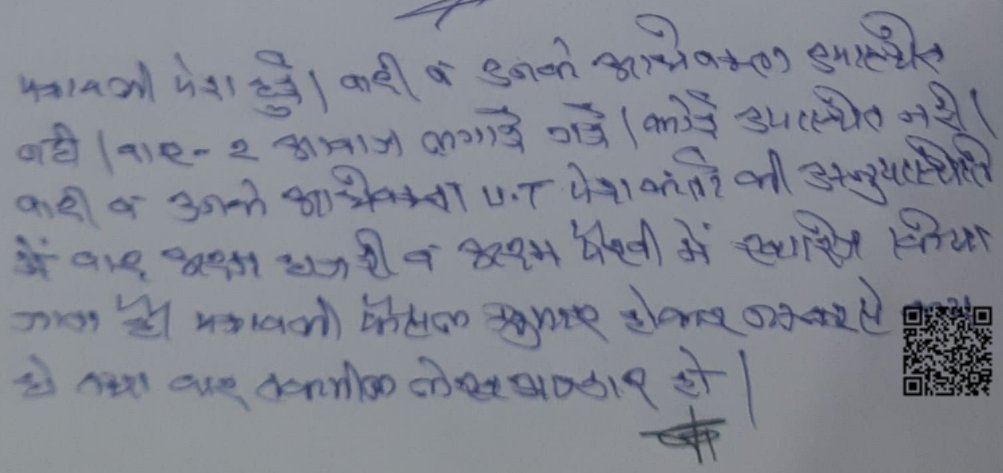 पत्रावली पेश हुई। वादी व उनके अधिवक्ता उपस्थित
नहीं। बार-२ आवाज लगाई गई। कोई उपस्थित नहीं।
वादी व उनके अधिवक्ता U.T पेश की अनुपस्थिति
में वाद अदम हाजरी व अदम पैरवी में खारिज किया
जाता है। पत्रावली फैसल शुमार होकर नम्बर से कम
हो तथा बाद तकमील लेखागार हो।